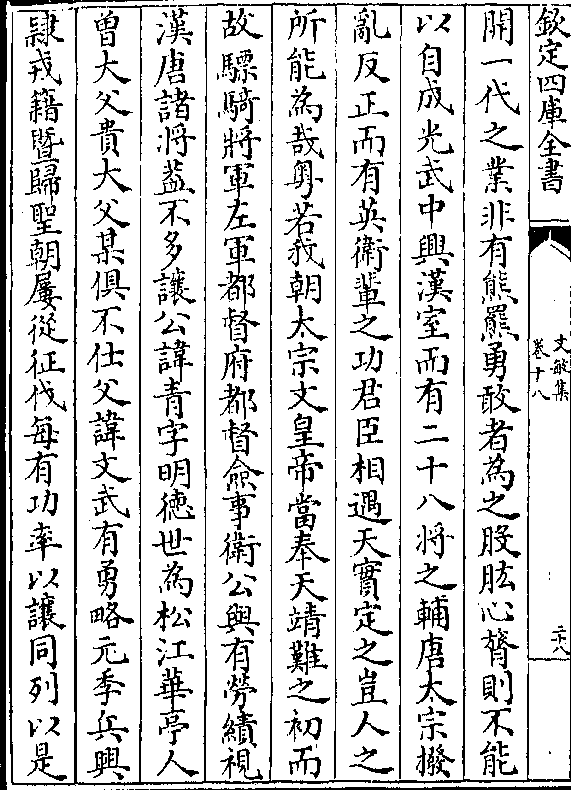 欽定四庫全書
文敏集
卷十八
二十八
開一代之業非有熊羆勇敢者為之股肱心膂則不能
以自成光武中興漢室而有二十八將之輔唐太宗撥
亂反正而有英衛輩之功君臣相遇天實定之豈人之
所能為哉粤若我朝太宗文皇帝當奉天靖難之初而
故驃騎將軍左軍都督府都督僉事衛公與有勞績視
漢唐諸將葢不多讓公諱青字明德世為松江華亭人
曾大父貴大父某俱不仕父諱文武有勇略元季兵興
隸戎籍暨歸聖朝屢從征伐每有功率以讓同列以是